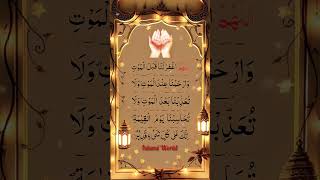 اَللّٰهُمَّ اغْفِرْلَنَا قَبْلَ الْمَوْتِ
وَارْحَمْنَا عِنْدَ الْمَوْتِ وَلَا
تُعَذِّبْنَا بَعْدَ الْمَوْتِ وَلَا
تُحَاسِبْنَا يَوْمَ الْقِيٰمَةِ
اِنَّكَ عَلٰى كُلِّ شَیْءٍ قَدِيْرٌ
Islamic World